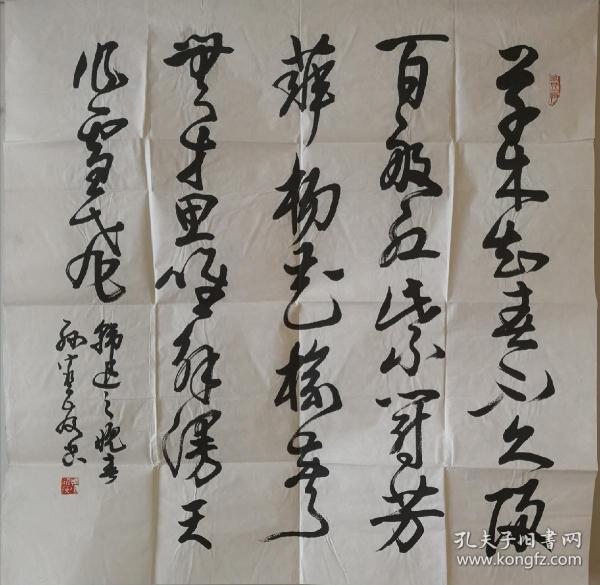 草木知春不久歸
百般紅紫鬥芳
菲楊花榆莢
無才思唯解漫天
作雪飛
韓退之晚春
孔夫子旧书网
www.kongfz.com